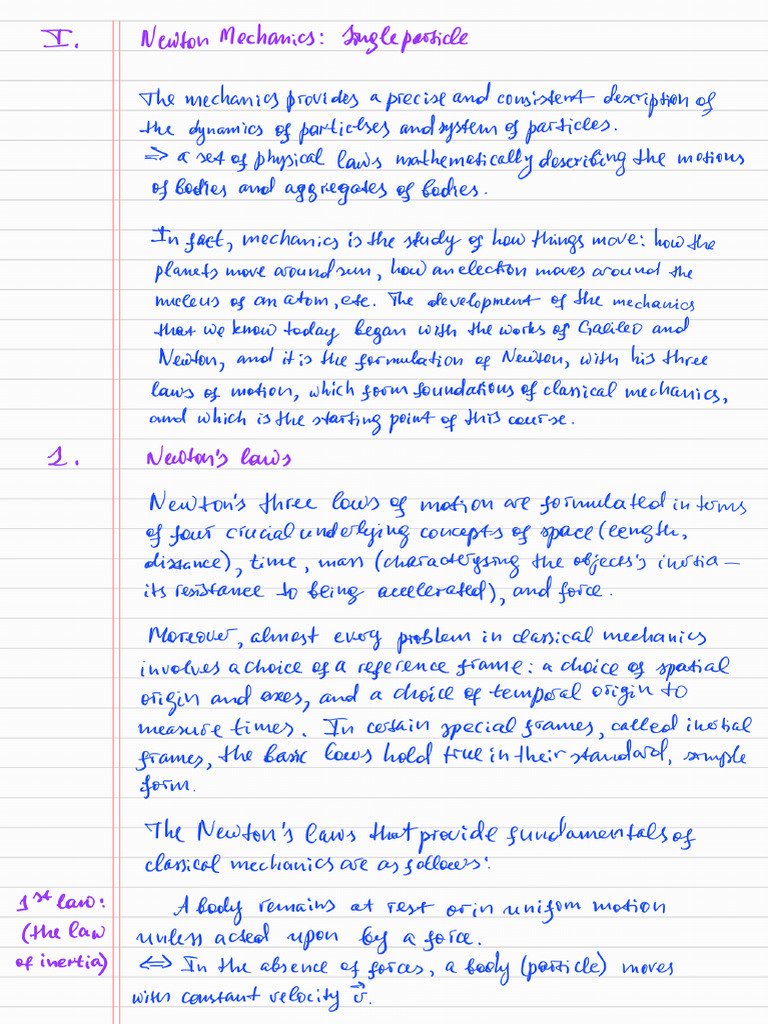 I. Newton Mechanics: Single particle
The mechanics provides a precise and consistent description of
the dynamics of particlses and system of particles.
=> a set of physical laws mathematically describing the motions
of bodies and aggregates of bodies.
In fact, mechanics is the study of how things move: how the
planets move around sun, how an election moves around the
nucleus of an atom, etc. The development of the mechanics
that we know today began with the works of Galileo and
Newton, and it is the formulation of Newton, with his three
laws of motion, which form foundations of classical mechanics,
and which is the starting point of this course.
1. Newton's laws
Newton's three laws of motion are formulated in terms
of four crucial underlying concepts of space (length,
distance), time, mass (characterysing the objects's inertia –
its resistance to being accelerated), and force.
Moreover, almost every problem in classical mechanics
involves a choice of a reference frame: a choice of spatial
origin and axes, and a choice of temporal origin to
measure times. In certain special frames, called inertial
frames, the basic laws hold true in their standard, simple
form.
The Newton's laws that provide fundamentals of
classical mechanics are as follows:
1st law: A body remains at rest or in uniform motion
(the law unless acted upon by a force.
of inertia) <=> In the absence of forces, a body (particle) moves
with constant velocity v⃗.